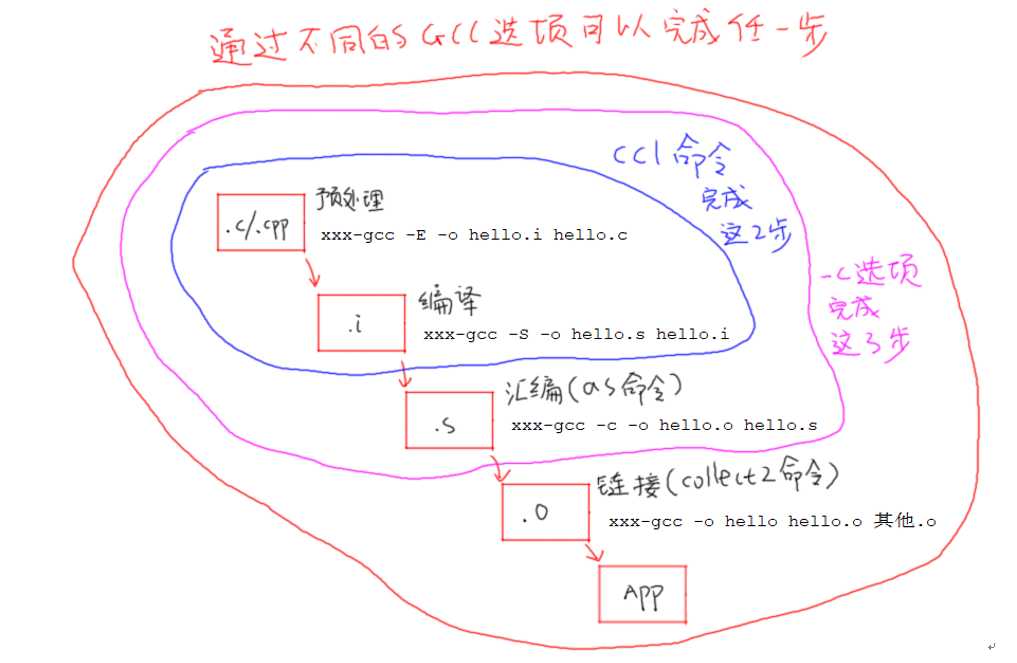 通过不同的GCC选项可以完成任一步
cc1命令
完成
这2步
预处理
.c/.cpp
xxx-gcc -E -o hello.i hello.c
-c选项
完成
这3步
编译
.i
xxx-gcc -S -o hello.s hello.i
汇编(as命令)
.s
xxx-gcc -c -o hello.o hello.s
链接(collect2命令)
.o
xxx-gcc -o hello hello.o 其他.o
App